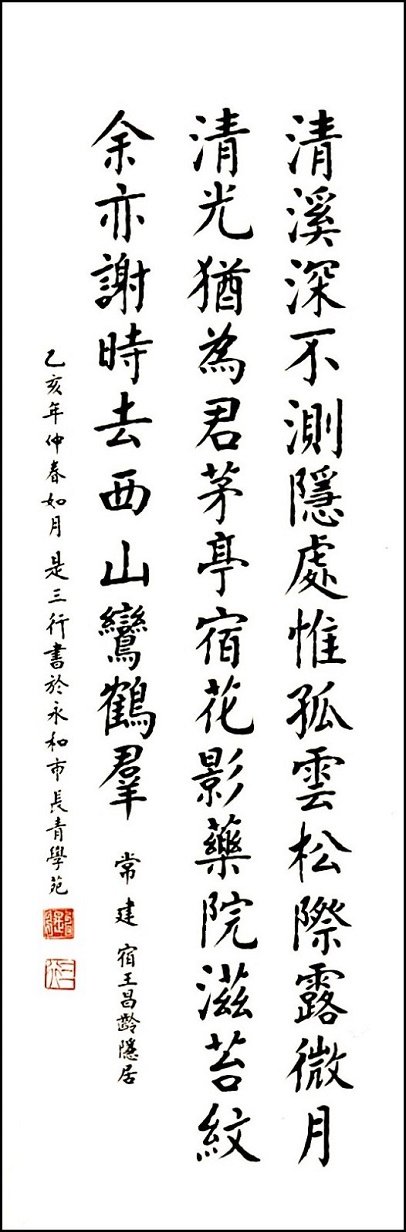 清溪深不測隱處惟孤雲松際露微月
清光猶為君茅亭宿花影藥院滋苔紋
余亦謝時去西山鸞鶴羣 常建 宿王昌齡隱居
乙亥年仲春如月是三行書於永和市長青學苑